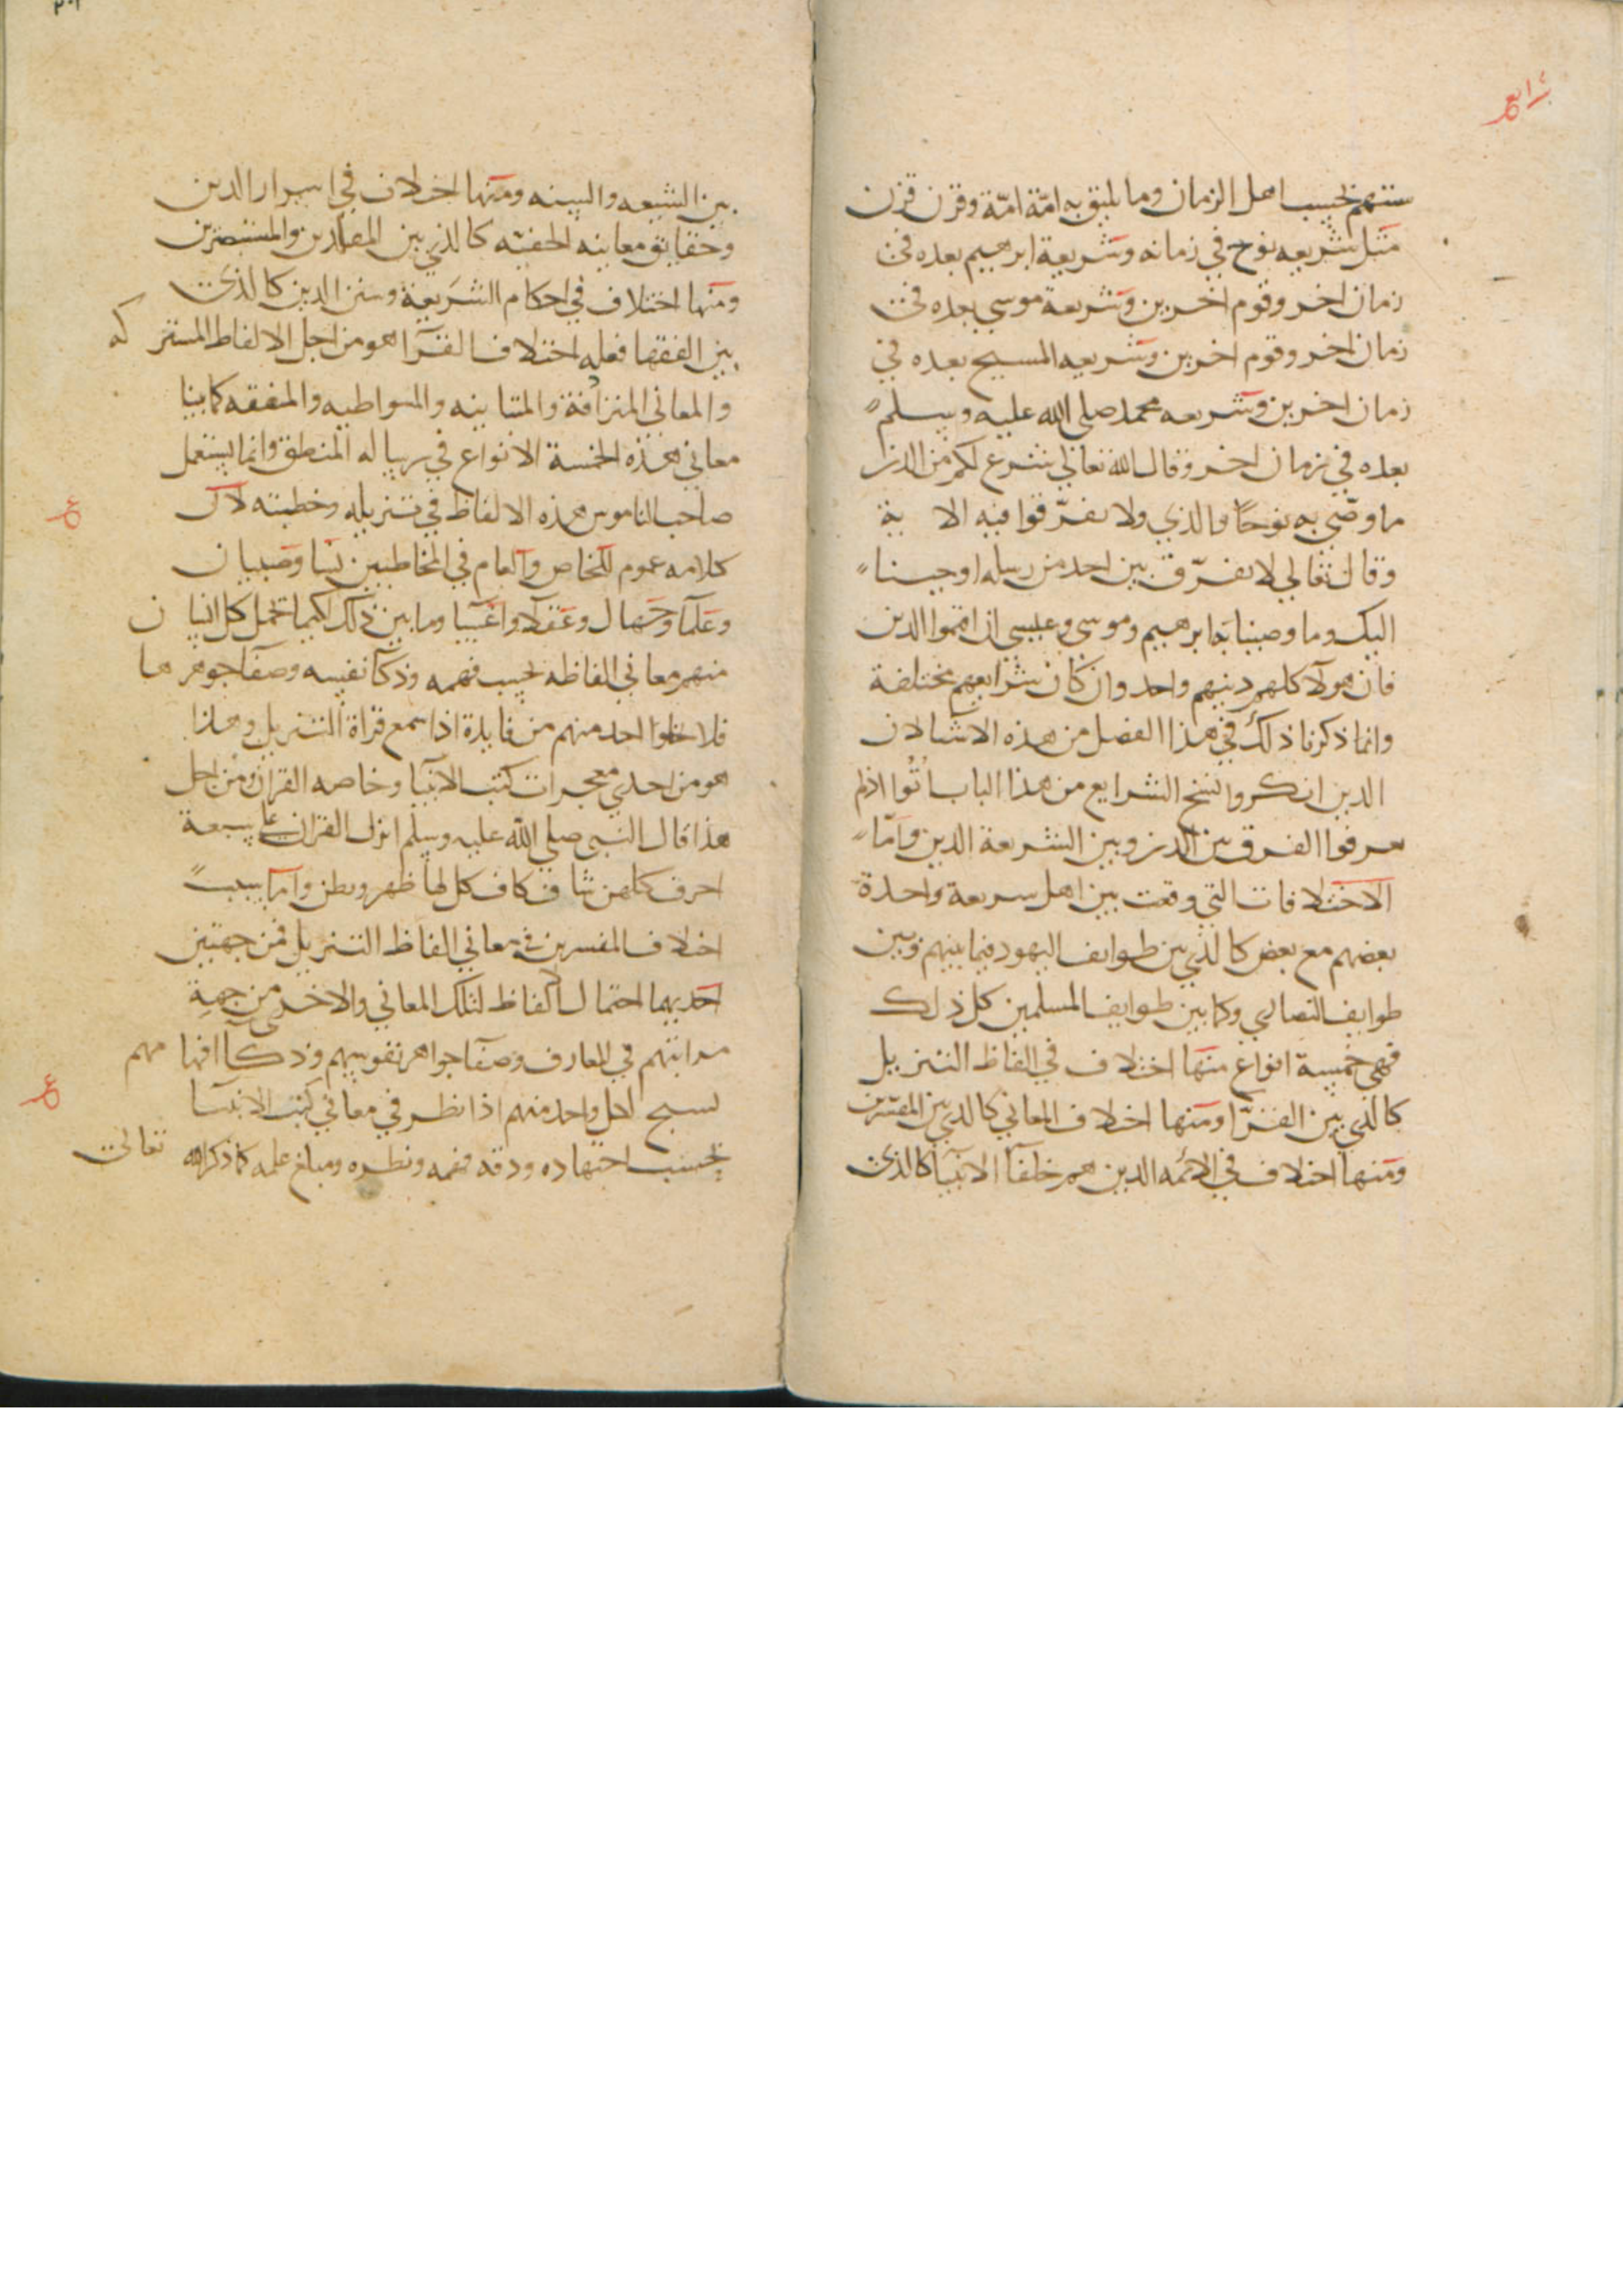 سنتهم بحسب اهل الزمان وما يليق به امّة امّة وقرن قرن
مثل شريعه نوح في زمانه وشريعة ابرهيم بعده في
زمان اخر وقوم اخرين وشريعة موسى بعده في
زمان اخر وقوم اخرين وشريعه المسيح بعده في
زمان اخرين وشريعه محمد صلى الله عليه وسلم
بعده في زمان اخر وقال الله تعالى شرع لكم من الدين
ما وصّى به نوحًا والذي ولا تفرّقوا فيه الا ية
وقال تعالي لا نفرّق بين احد من رسله اوحينا
اليك وما وصينا به ابرهيم وموسى وعيسى ان اقيموا الدين
فان هولآ كلهم دينهم واحد وان كان شرايعهم مختلفة
وانما ذكرنا ذلك في هذا الفصل من هذه الا لان
الذين انكروا نسخ الشرايع من هذا الباب اُتُوا اذ لم
يعرفوا الفرق بين الدين وبين الشريعة الدين وامّا
الاختلافات التي وقعت بين اهل شريعة واحدة
بعضهم مع بعض كالذي بين طوايف اليهود فيما بينهم وبين
طوايف النصارى وكما بين طوايف المسلمين كل ذلك
فهي خمسة انواع منها اختلاف في الفاظ التنزيل
كالذي بين القرّا ومنها اختلاف المعاني كالذي بين المفسّرين
ومنها اختلاف في الائمه الذين هم خلفآ الانبيآ كالذي
بين الشيعه والسنه ومنها اختلاف في اسرار الدين
وحقايق معانيه الخفيّه كالذي بين المقلدين والمستبصرين
ومنها اختلاف في احكام الشريعة وسنن الدين كالذي
بين الفقها فعله اختلاف القرّآ هو من اجل الالفاظ المشتركه
والمعاني المترادفة والمتباينه والمتواطيه والمتفقه كما بينا
معاني هذه الخمسة الانواع في رساله المنطق وانما يستعمل
صاحب الناموس هذه الالفاظ في تنزيله وخطبته لان
كلامه عموم للخاص والعام في المخاطبين نسا وصبيان
وعلمآ وجهال وعقلآ واغبيآ وما بين ذلك لكيما تحمل كل انسان
منهم معاني الفاظه بحسب فهمه وذكآ نفسه وصفا جوهرها
فلا يخلوا احد منهم من فايدة اذا سمع قراة التنزيل وهذا
هو من احدي معجزات كتب الانبيآ وخاصه القران ومن اجل
هذا قال النبي صلى الله عليه وسلم انزل القران على سبعة
احرف كلهن شاف كاف كل لها ظهر وبطن وامّا سبب
اختلاف المفسرين في معاني الفاظ التنزيل فمن جهتين
احديهما احتمال الالفاظ لتلك المعاني والاخرى من جهة
مراتبهم في المعارف وصفآ جواهر نفوسهم وذكآ افهامهم
يسنح لكل واحد منهم اذا نظر في معاني كتب الانبيآ
بحسب اجتهاده ودقه فهمه ونظره ومبلغ علمه كما ذكر الله تعالى